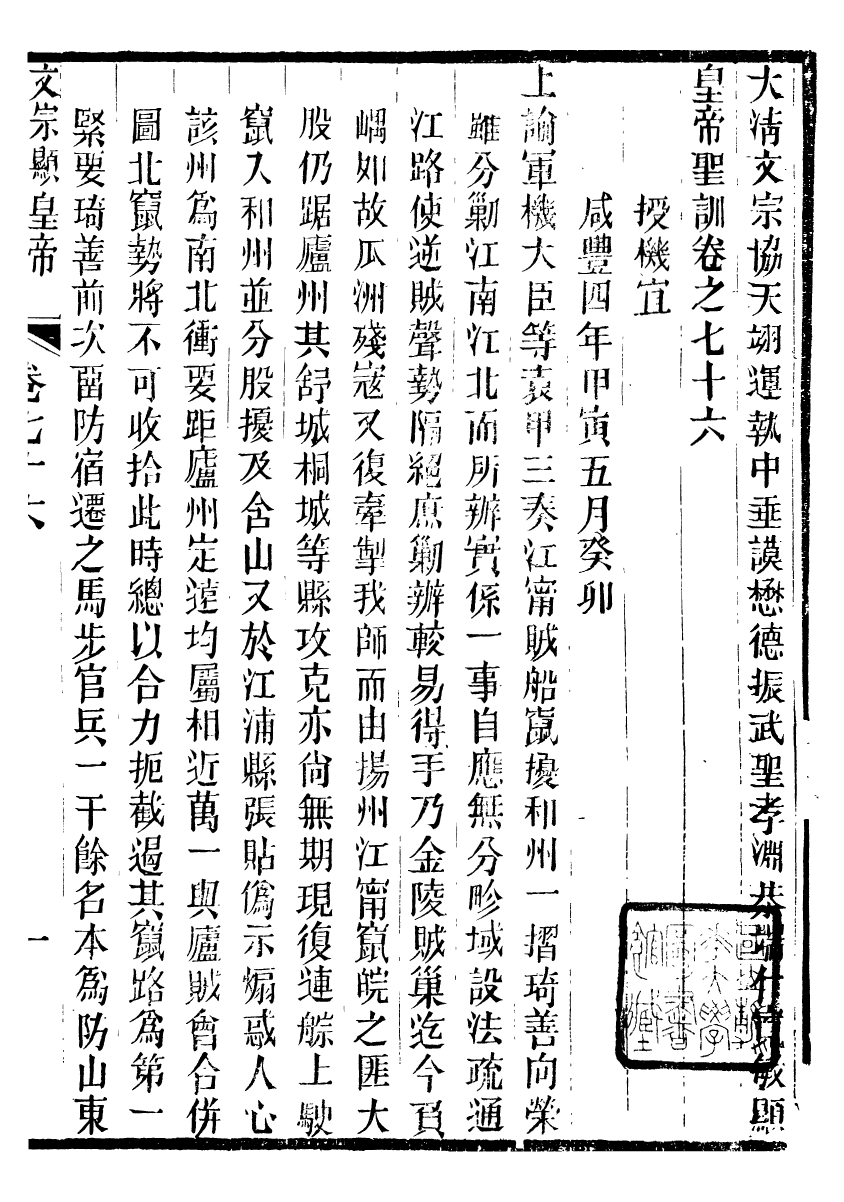 大清文宗協天翊運執中垂謨懋德振武聖孝淵恭端仁寬敏顯
皇帝聖訓卷之七十六
授機宜
咸豐四年甲寅五月癸卯
上諭軍機大臣等袁甲三奏江甯賊船竄擾和州一摺琦善向榮
雖分勦江南江北而所辦實係一事自應無分畛域設法疏通
江路使逆賊聲勢隔絕庶勦辦較易得手乃金陵賊巢迄今負
嵎如故瓜洲殘寇又復牽掣我師而由揚州江甯竄皖之匪大
股仍踞廬州其舒城桐城等縣攻克亦尙無期現復連䑸上駛
竄入和州並分股擾及含山又於江浦縣張貼僞示煽惑人心
該州爲南北衝要距廬州定遠均屬相近萬一與廬賊會合併
圖北竄勢將不可收拾此時總以合力扼截遏其竄路爲第一
緊要琦善前次畱防宿遷之馬步官兵一千餘名本爲防山東
文宗顯皇帝 卷七十六 一
國立清華大學圖書館藏